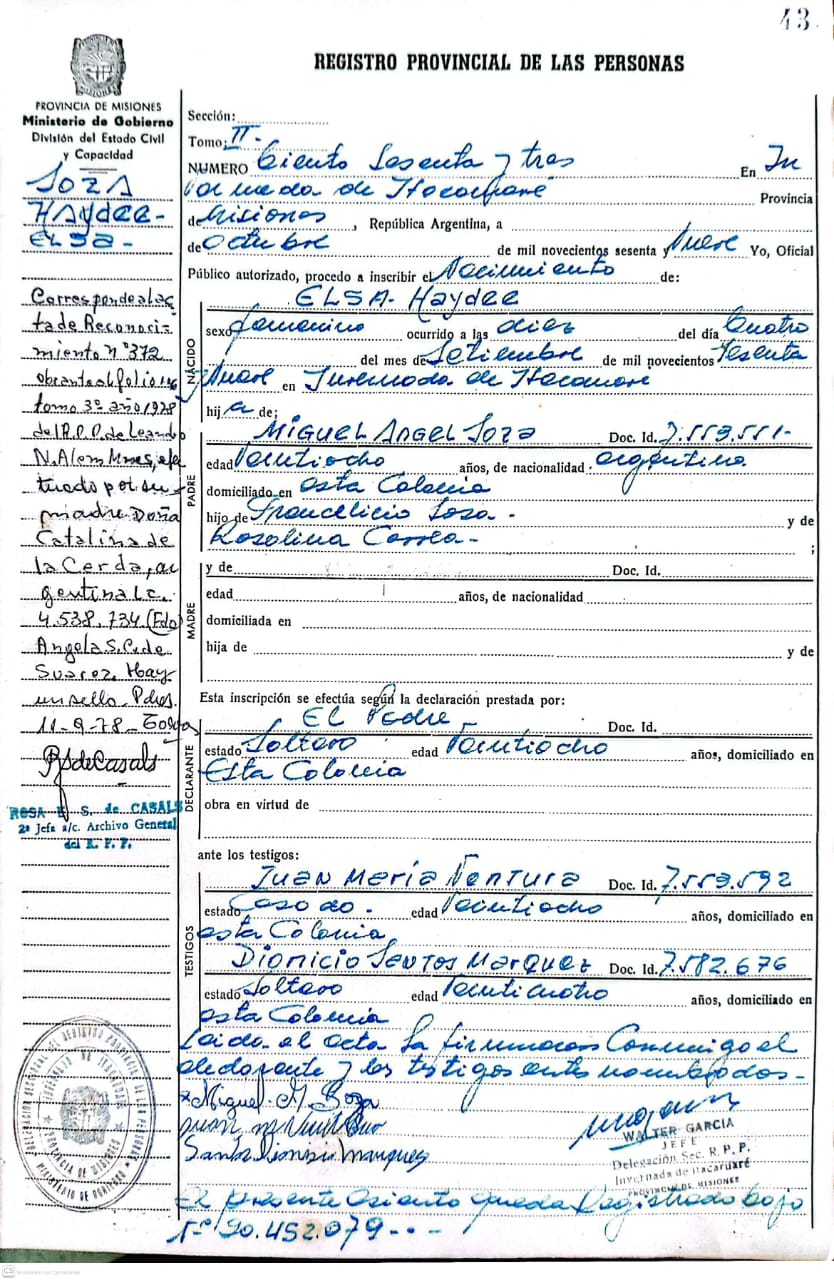 43
REGISTRO PROVINCIAL DE LAS PERSONAS
PROVINCIA DE MISIONES
Ministerio de Gobierno
División del Estado Civil
y Capacidad
SOZA
HAYDEE-
ELSA-
Corresponde al ac
ta de Reconoci-
miento nº 372
obrante al folio 116
tomo 3º año 1978
del R.P.P. de Leandro
N. Alem Mnes, efec
tuado por su
madre Doña
Catalina de
la Cerda, ar
gentina L.c.
4.538.734 (Fdo)
Angela S. C. de
Suarez. Hay
un sello. Pdas.
11-9-78-
RSdeCasals
ROSA E. S. de CASALS
2ª Jefa a/c. Archivo General
del R. P. P.
Sección:
Tomo: II-
NUMERO Ciento Sesenta y tres En In
vernada de Itacaruaré Provincia
de Misiones, República Argentina, a
de Octubre de mil novecientos sesenta y Nueve Yo, Oficial
Público autorizado, procedo a inscribir el Nacimiento de:
NACIDO
ELSA-Haydee
sexo femenino ocurrido a las diez del día Cuatro
del mes de Setiembre de mil novecientos Sesenta
y Nueve en Invernada de Itacaruare
hij a de:
PADRE
MIGUEL ANGEL SOZA Doc. Id. 7.553.551-
edad Veintiocho años, de nacionalidad argentino.
domiciliado en esta Colonia
hijo de Francelicio Sosa- y de
Rosolina Correa- ;
MADRE
y de Doc. Id.
edad años, de nacionalidad
domiciliada en
hija de y de
Esta inscripción se efectúa según la declaración prestada por:
DECLARANTE
EL Padre- Doc. Id.
estado Soltero edad Veintiocho años, domiciliado en
Esta Colonia
obra en virtud de
ante los testigos:
TESTIGOS
JUAN MARIA VENTURA Doc. Id. 7.553.592
estado Casado. edad Veintiocho años, domiciliado en
esta Colonia
DIONICIO SANTOS MARQUEZ Doc. Id. 7.582.676
estado Soltero edad Veinticuatro años, domiciliado en
esta Colonia
Leida el acta la firmaron Conmigo el
declarante y los testigos antes nombrados-
Miguel A Soza
Juan
Santo Dionisio Marquez
WALTER GARCIA
JEFE
Delegación Sec. R. P. P.
Invernada de Itacaruaré
PROVINCIA DE MISIONES
PROVINCIA DE MISIONES
MINISTERIO DE GOBIERNO
El presente Asiento queda Registrado bajo
Nº 20.452.079---
CS